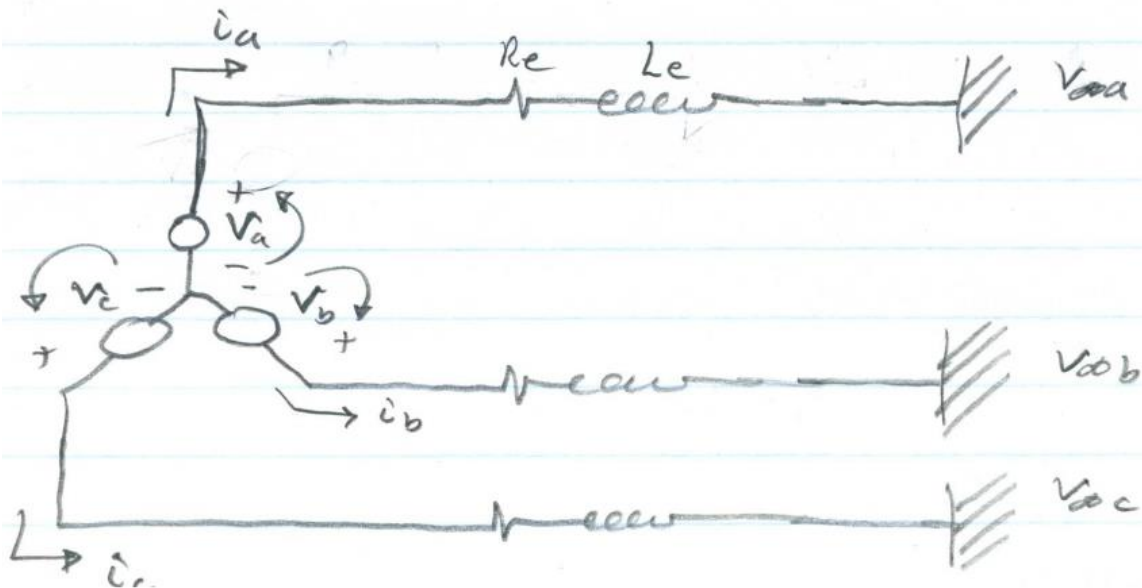 ia
Re Le V∞a
+
Va
−
Vc − − Vb
+ +
V∞b
ib
V∞c
ic